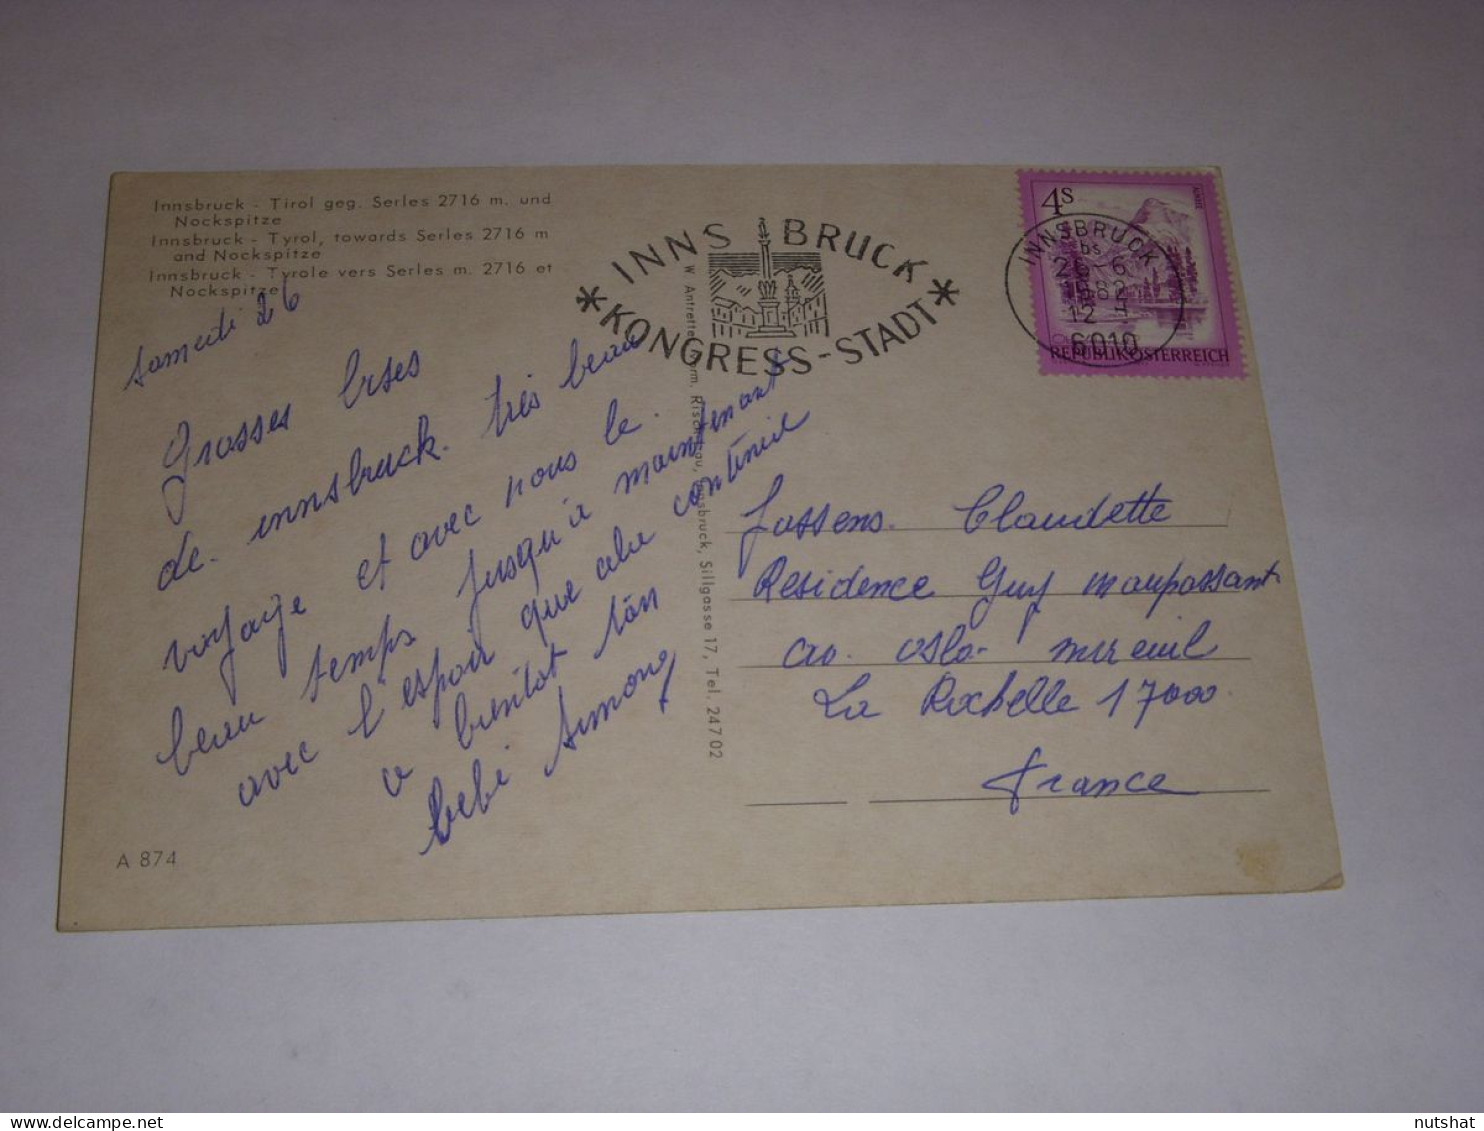 Innsbruck - Tirol geg. Serles 2716 m. und
Nockspitze
Innsbruck - Tyrol, towards Serles 2716 m
and Nockspitze
Innsbruck - Tyrole vers Serles m. 2716 et
Nockspitze
samedi 26
Grosses bses
de innsbruck. très beau
voyage et avec nous le
beau temps jusqu'à maintenant
avec l'espoir que continue
a bientot
bébé Simone
A 874
INNSBRUCK
* KONGRESS-STADT *
W. Antretter, Innsbruck, Sillgasse 17, Tel. 247 02
4S
INNSBRUCK
bs
26-6
1982
12
6010
REPUBLIK ÖSTERREICH
Jossens. Claudette
Residence Guy maupassant
av. oslo- mireuil
La Rochelle 17000
france
nutshat